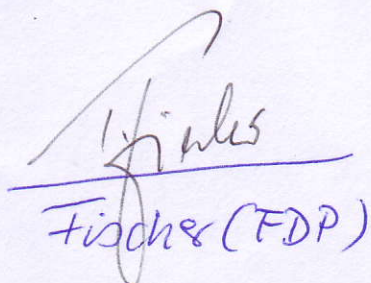 Fischer (FDP)